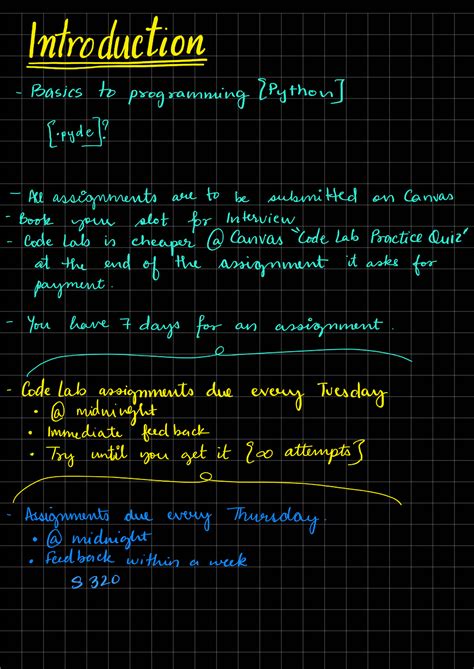 Introduction
- Basics to programming [Python]
[.pyde]?
- All assignments are to be submitted on Canvas
- Book your slot for Interview
- Code Lab is cheaper @ Canvas "Code Lab Practice Quiz"
at the end of the assignment it asks for
payment.
- You have 7 days for an assignment.
- Code Lab assignments due every Tuesday
• @ midnight
• Immediate feedback
• Try until you get it [∞ attempts]
- Assignments due every Thursday.
• @ midnight
• Feedback within a week
S 320